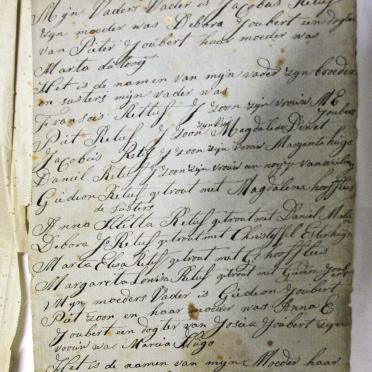 Mijn Vaders Vader is Jacobus Retief
zijn moeder was Debora Joubert een dogter
van Pieter Joubert haar moeder was
Marta
Het is de namen van mijn vader zijn broeders
en susters mijn vader was
Fransois Retief J zoon zijn vrouw M E Joubert
Piet Retief J zoon zijn vrouw Magdalena Dewet
Jacobus Retief J zoon zijn vrouw Margareta hugo
Daniel Retief J zoon zijn vrouw
Gideon Retief getrout met Magdalena hofflus
de susters
Anna Heletta Retief getrout met Daniel Malan
Debora Js Retief getrout met Christoffel Esterhuyse
Marta Elisa Retief getrout met G hofflus
Margareta Louisa Retief getrout met
Mijn moeders Vader is Gideon Joubert
Piet zoon en haar moeder was Anna E
Joubert een dogter van Josua Joubert zijn
vrouw was Maria Hugo
Het is de namen van mijn Moeder haar